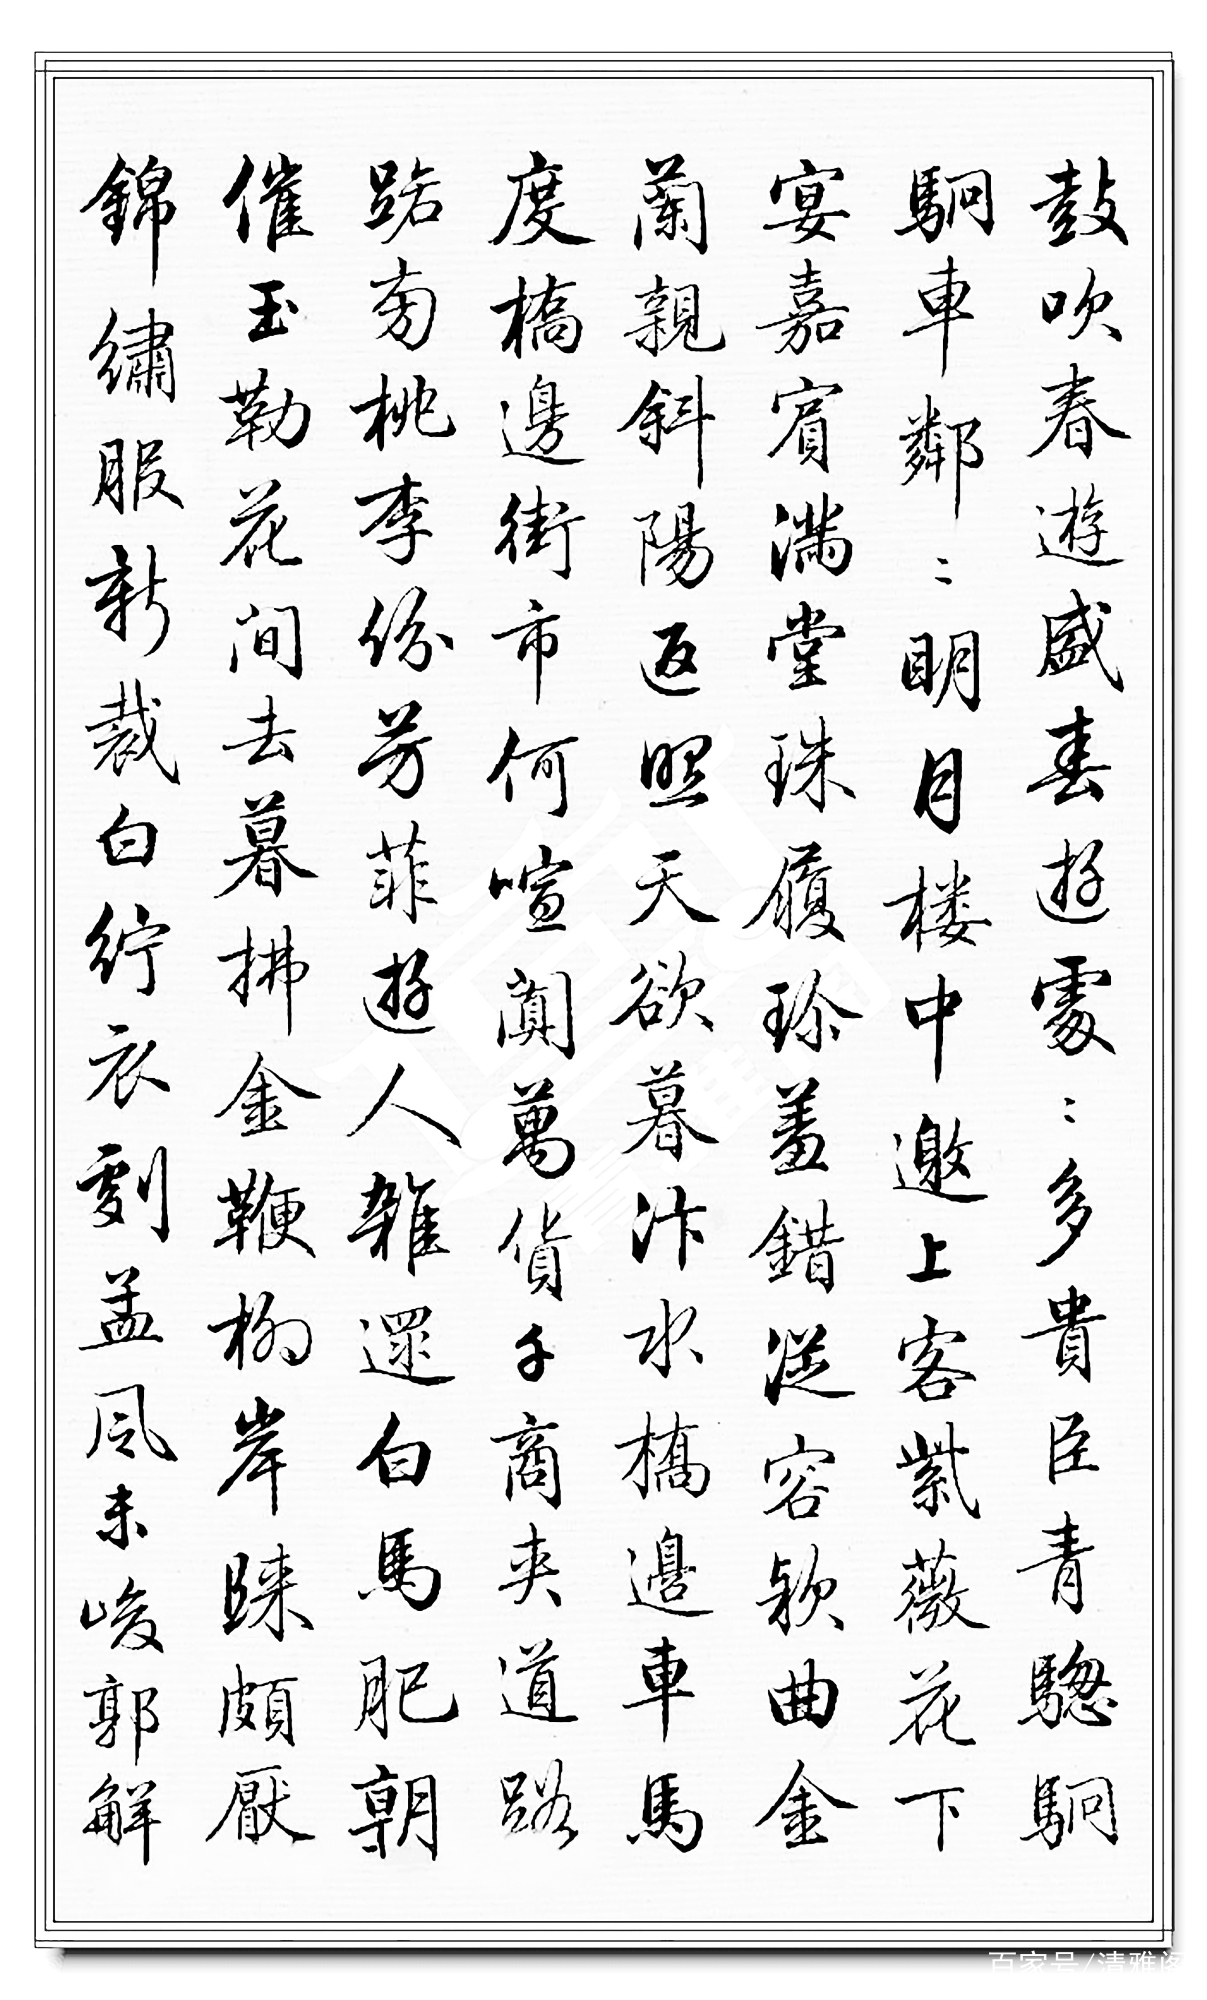 鼓吹春遊盛春遊處〻多貴臣青驄駉
駉車鄰〻明月楼中邀上客紫薇花下
宴嘉賓滿堂珠履珍羞錯從容欵曲金
蘭親斜陽返照天欲暮汴水橋邊車馬
度橋邊街市何喧闐萬貨千商夾道路
路旁桃李份芳菲遊人雜遝白馬肥朝
催玉勒花间去暮拂金鞭柳岸歸頗厭
錦繡服新裁白紵衣劇孟風未峻郭解
百家号/清雅阁